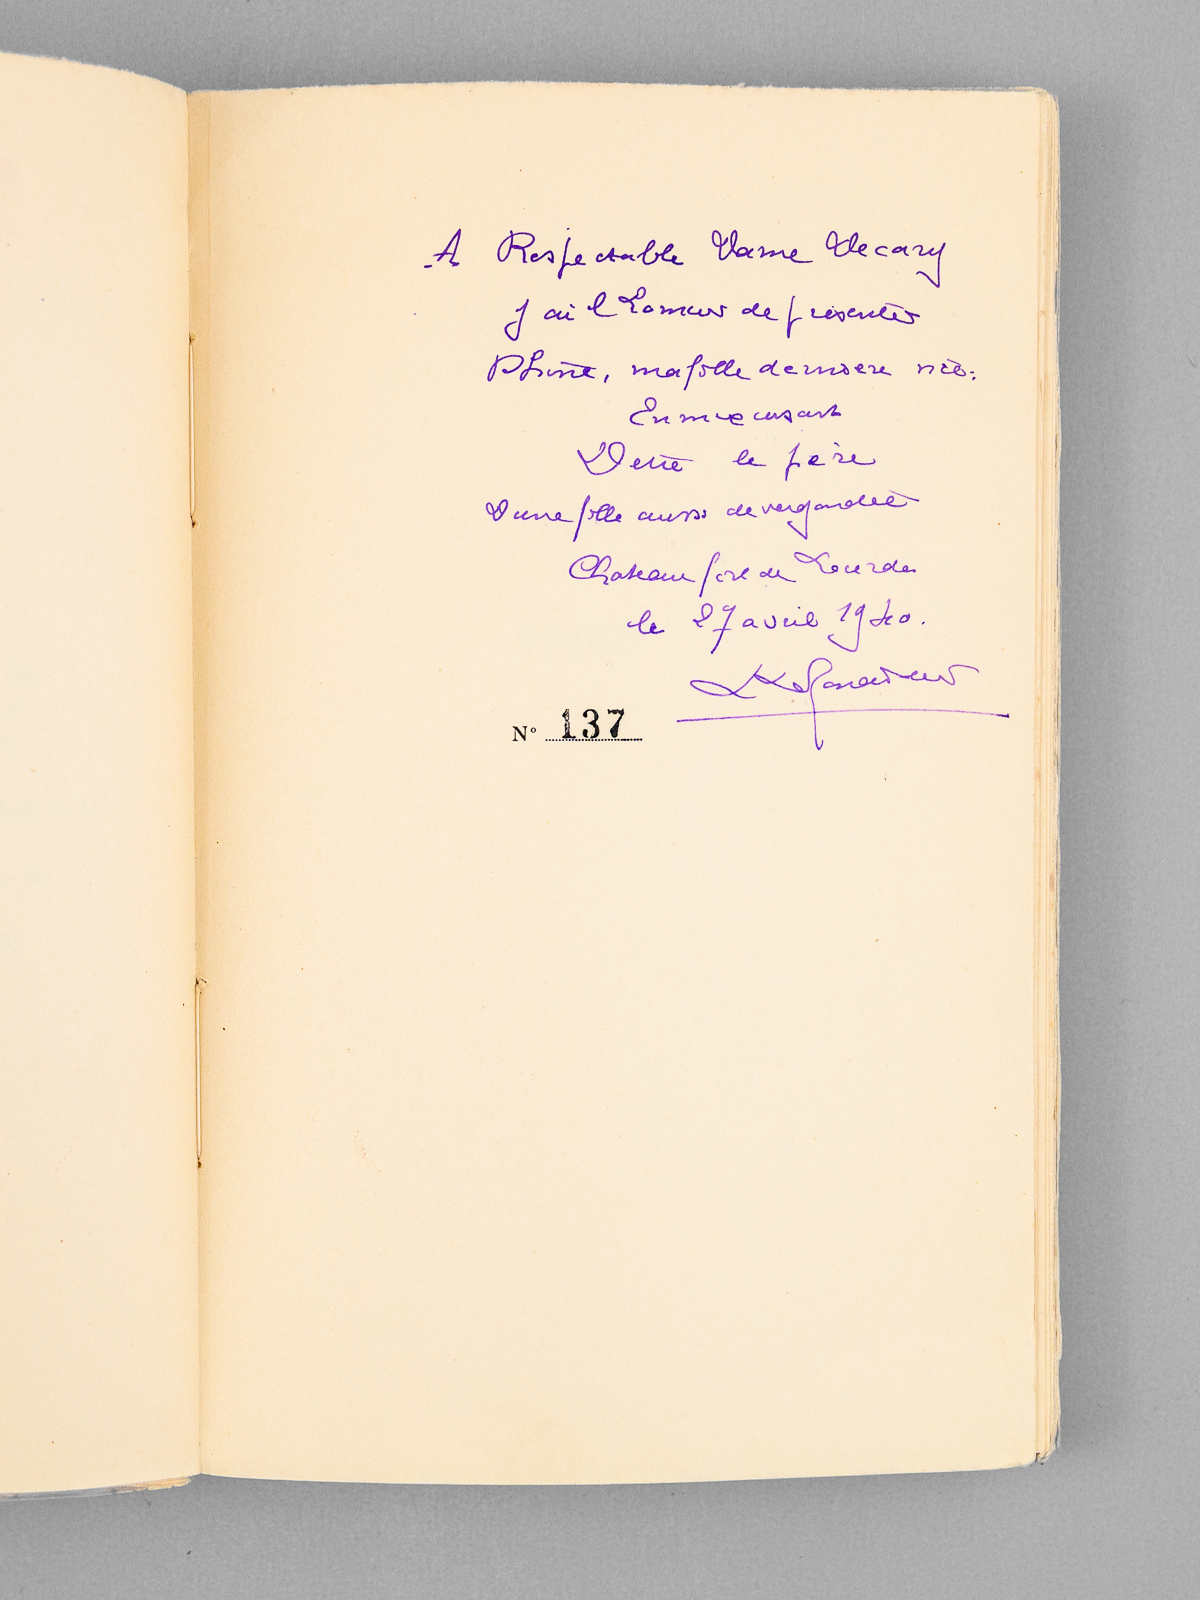 A Respectable Dame Decary
j ai l honneur de presenter
Phine, ma fille derniere née.
En m excusant
D etre le père
D une fille aussi devergondée
Chateau fort de Lourdes
le 27 avril 1940.
Nº 137